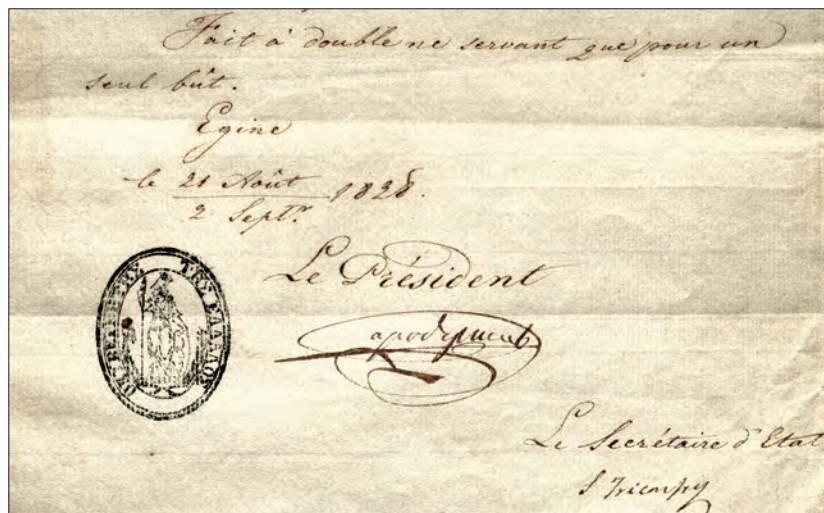 Fait à double ne servant que pour un
seul bût.
Egine
le 21 Août 1828.
2 Septre.
Le Président
ΤΗΣ ΕΛΛΑΔΟΣ
Le Secrétaire d'Etat